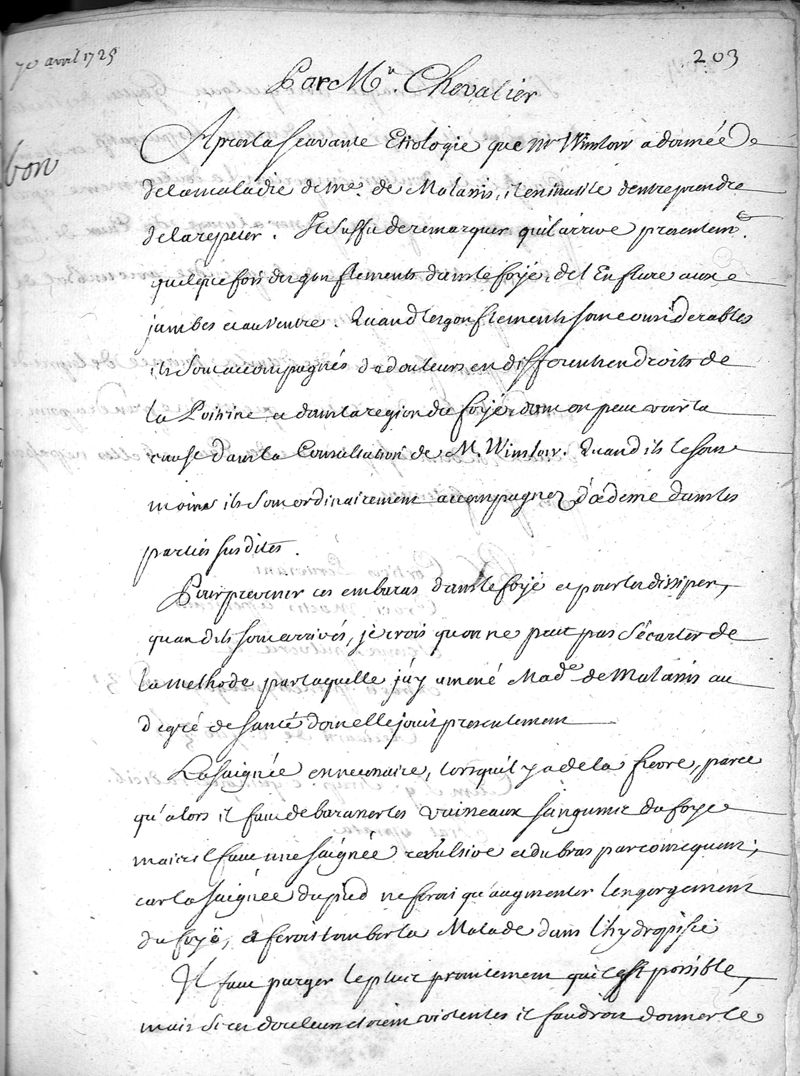 70 avril 1725
203
Par Mr. Chevalier
bon
Apres la scavante Etiologie que Mr Winslow a donnée
de la maladie de me. de Malassis, il est inutile d'entreprendre
de la repeter. Il suffit de remarquer qu'il arrive presentemt.
quelque fois des gonflements dans le foye, de l'Enflure aux
jambes et au ventre. Quand les gonflements sont considerables
ils sont accompagnés de douleurs en differents endroits de
la Poitrine et dans la region du foye dont on peut voir la
cause dans la Consultation de M. Winslow. Quand ils le sont
moins ils sont ordinairement accompagnez d'œdeme dans les
parties susdites.
Pour prevenir ces embaras dans le foye et pour les dissiper,
quand ils sont arrivés, je crois qu'on ne peut pas s'écarter de
la methode par laquelle j'ay amené Made de Malassis au
degré de santé dont elle jouit presentement
La saignée est necessaire, lorsqu'il y a de la fievre, parce
qu'alors il faut debarasser les vaisseaux sanguins du foye
mais il faut une saignée revulsive et du bras par consequent;
car la saignée du pied ne feroit qu'augmenter l'engorgement
du foye, et feroit tomber la Malade dans l'hydropisie
Il faut purger le plus promtement qu'il est possible,
mais si les douleurs etoient violentes il faudroit donner le